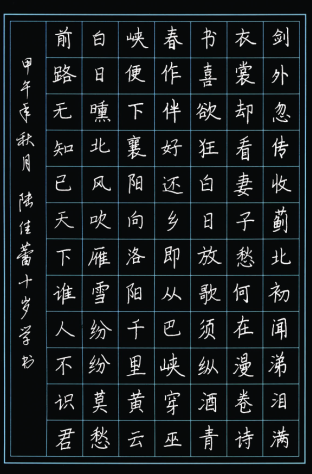 剑外忽传收蓟北初闻涕泪满
衣裳却看妻子愁何在漫卷诗
书喜欲狂白日放歌须纵酒青
春作伴好还乡即从巴峡穿巫
峡便下襄阳向洛阳千里黄云
白日曛北风吹雁雪纷纷莫愁
前路无知己天下谁人不识君
甲午年秋月 陆佳蕾十岁学书